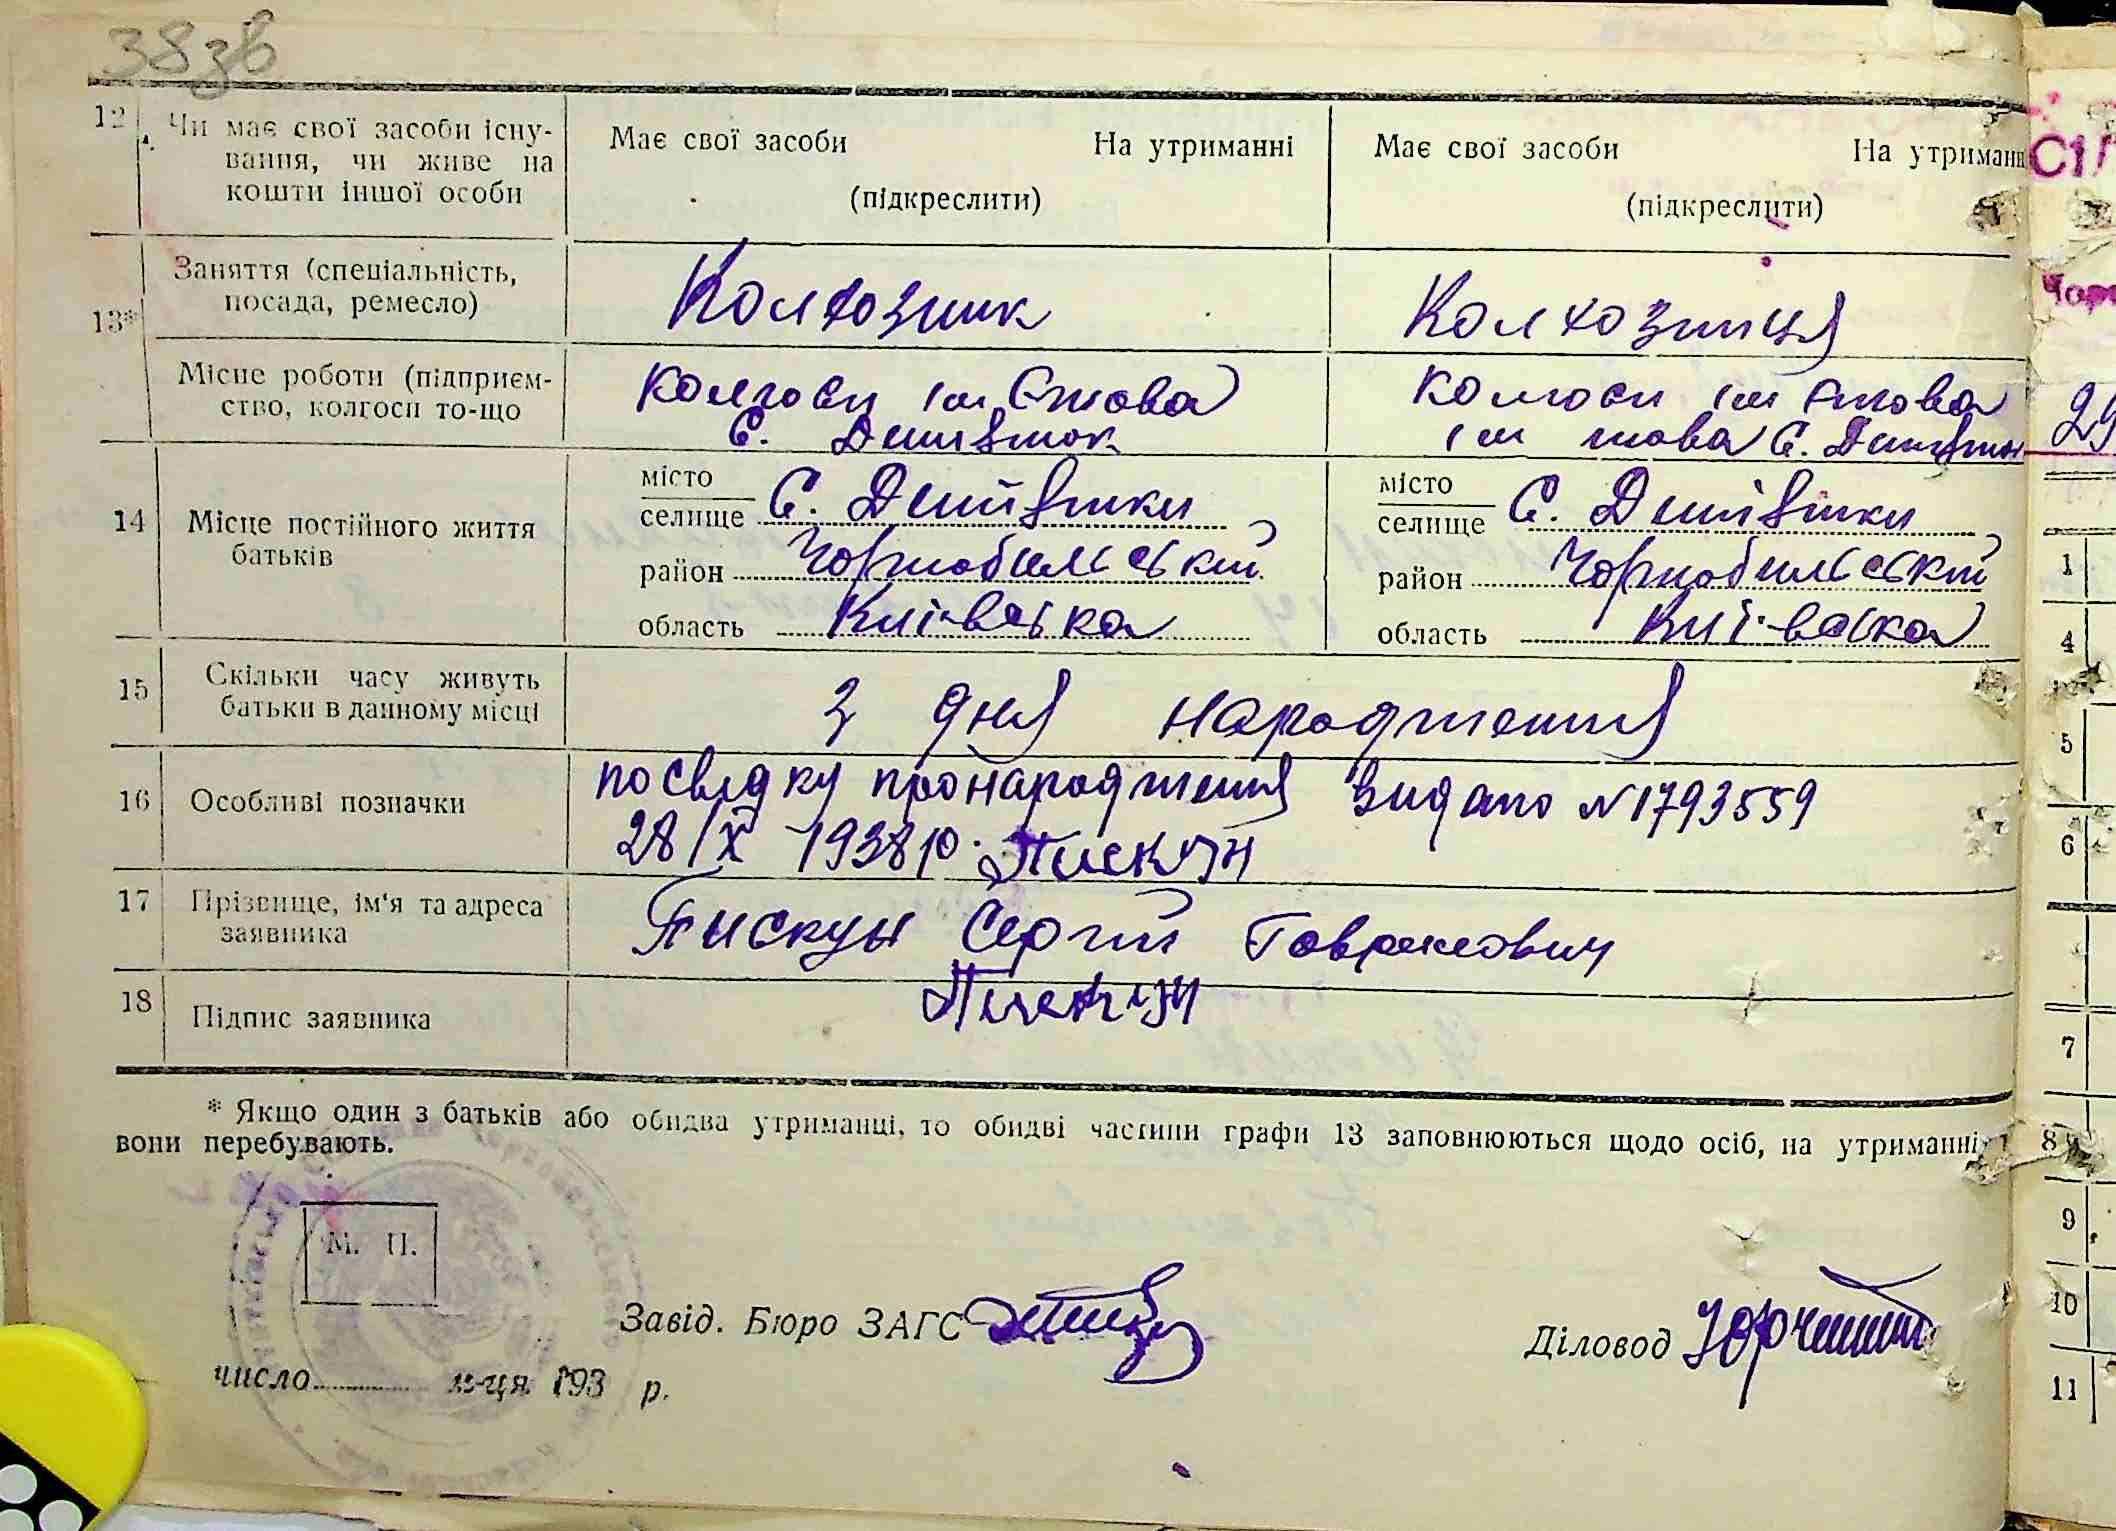 38зв
12 Чи має свої засоби існу-
вання, чи живе на
кошти іншої особи
Має свої засоби На утриманні
(підкреслити)
Має свої засоби На утриманн
(підкреслити)
13*
Заняття (спеціальність,
посада, ремесло)
Колхозник
Колхозниця
Місце роботи (підприєм-
ство, колгосп то-що
колгосп ім Єжова
С.
колгосп ім Єжова
ім жова С.
14 Місце постійного життя
батьків
місто
селище С. Дитятки
район Чорнобильський
область Київська
місто
селище С. Дитятки
район Чорнобильський
область Київська
15 Скільки часу живуть
батьки в данному місці
З дня народження
16 Особливі позначки
посвідку про народження видано №1793559
28/X 1938р. Пискун
17 Прізвище, ім'я та адреса
заявника
Пискун Сергій Гаврилович
18 Підпис заявника
Пискун
* Якщо один з батьків або обидва утриманці, то обидві частини графи 13 заповнюються щодо осіб, на утриманні
вони перебувають.
М. П.
Завід. Бюро ЗАГС
Діловод
число м-ця 193 р.
29
1
4
5
6
7
8
9
10
11